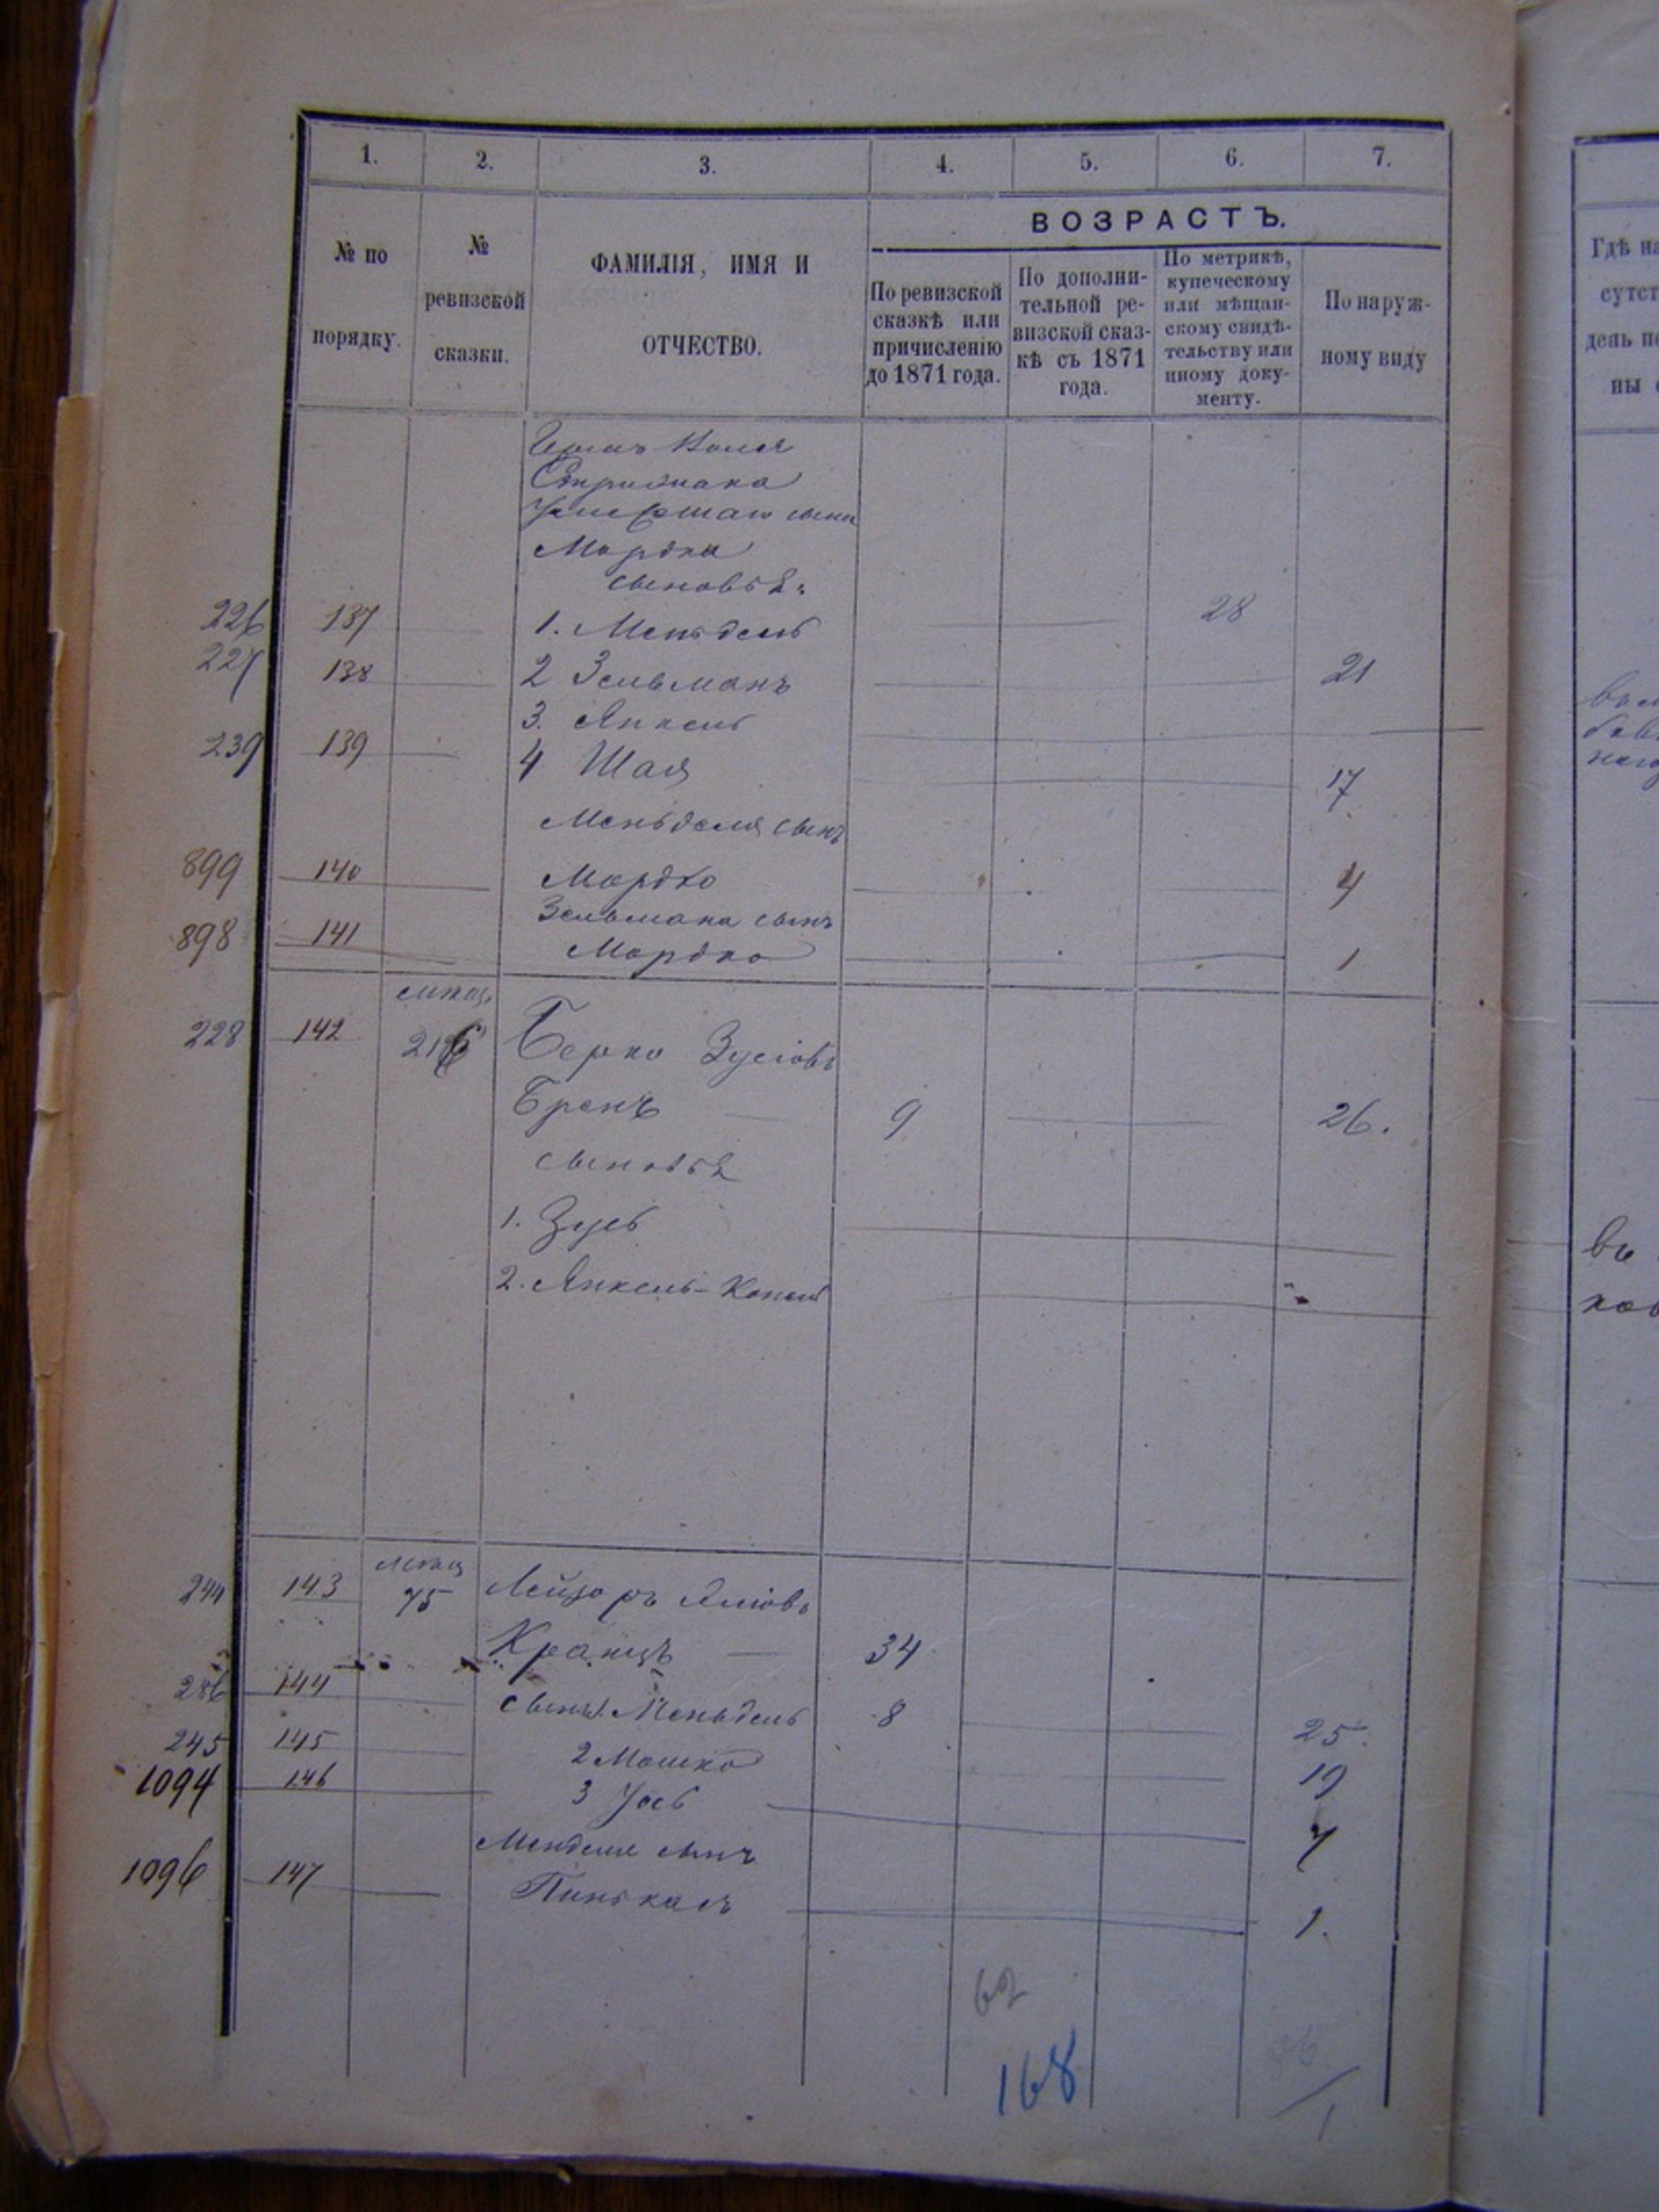 1. 2. 3. 4. 5. 6. 7.
№ по порядку.
№ ревизской сказки.
ФАМИЛІЯ, ИМЯ И ОТЧЕСТВО.
ВОЗРАСТЪ.
По ревизской сказкѣ или причисленію до 1871 года.
По дополни-
тельной ре-
визской сказ-
кѣ съ 1871
года.
По метрикѣ,
купеческому
или мѣщан-
скому свидѣ-
тельству или
иному доку-
менту.
По наруж-
ному виду
Мордка
сыновья:
226 137 1. Мендель 28
227 138 2 Зельманъ 21
3. Янкель
239 139 4 Шая 17
Менделя сынъ
899 140 Мордко 4
Зельмана сынъ
898 141 Мордко 1
мѣщ.
228 142 216 Берко Зусіовъ
Бренъ 9 26.
сыновья
1. Зусь
2. Янкель-Копель
мѣщ
244 143 75 Лейзоръ
Кранцъ 34
286 144 сыны 1. Мендель 8 25.
245 145 2 Мошко 19
1094 146 3 Уось 7
Менделя сынъ
1096 147 Пинькасъ 1.
62
168
1
Гдѣ на
сутст
день пе
ны
въ